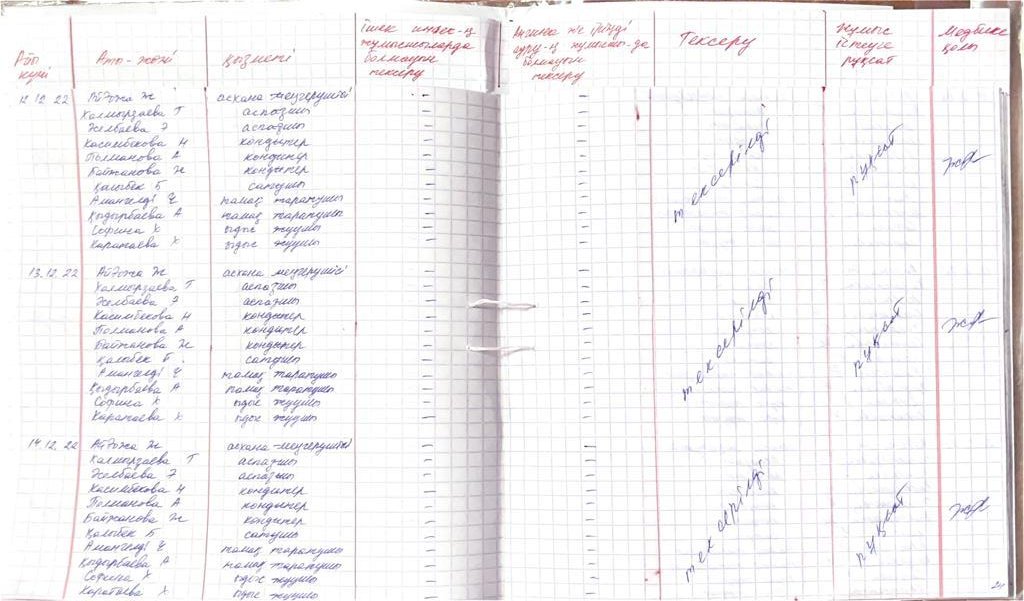 Айы күні Аты-жөні Қызметі Ішек инфек-ң жұмысшыларда болмауын тексеру Ангина ж/е іріңді ауру-ң жұмысшы-да болмауын тексеру Тексеру Жұмыс істеуге рұқсат Медбике қолы
12.12.22 Айқожа Ж асхана меңгерушісі — —
Халмырзаева Т аспазшы — —
Желбаева Э аспазшы — —
Касимбекова Н кондитер — —
Полманова А кондитер — —
Байжанова Ж кондитер — —
Қалыбек Б сатушы — —
Амангелді Ұ тамақ таратушы — —
Қыдырбаева А тамақ таратушы — —
Софина Х ыдыс жуушы — —
Каратаева Х ыдыс жуушы — —
тексерілді рұқсат
13.12.22 Айқожа Ж асхана меңгерушісі — —
Халмырзаева Т аспазшы — —
Желбаева Э аспазшы — —
Касимбекова Н кондитер — —
Полманова А кондитер — —
Байжанова Ж кондитер — —
Қалыбек Б. сатушы — —
Амангелді Ұ тамақ таратушы — —
Қыдырбаева А тамақ таратушы — —
Софина Х ыдыс жуушы — —
Каратаева Х ыдыс жуушы — —
тексерілді рұқсат
14.12.22 Айқожа Ж асхана меңгерушісі — —
Халмырзаева Т аспазшы — —
Желбаева Э аспазшы — —
Касимбекова Н кондитер — —
Полманова А кондитер — —
Байжанова Ж кондитер — —
Қалыбек Б сатушы — —
Амангелді Ұ тамақ таратушы — —
Қыдырбаева А тамақ таратушы — —
Софина Х ыдыс жуушы — —
Каратаева Х ыдыс жуушы — —
тексерілді рұқсат